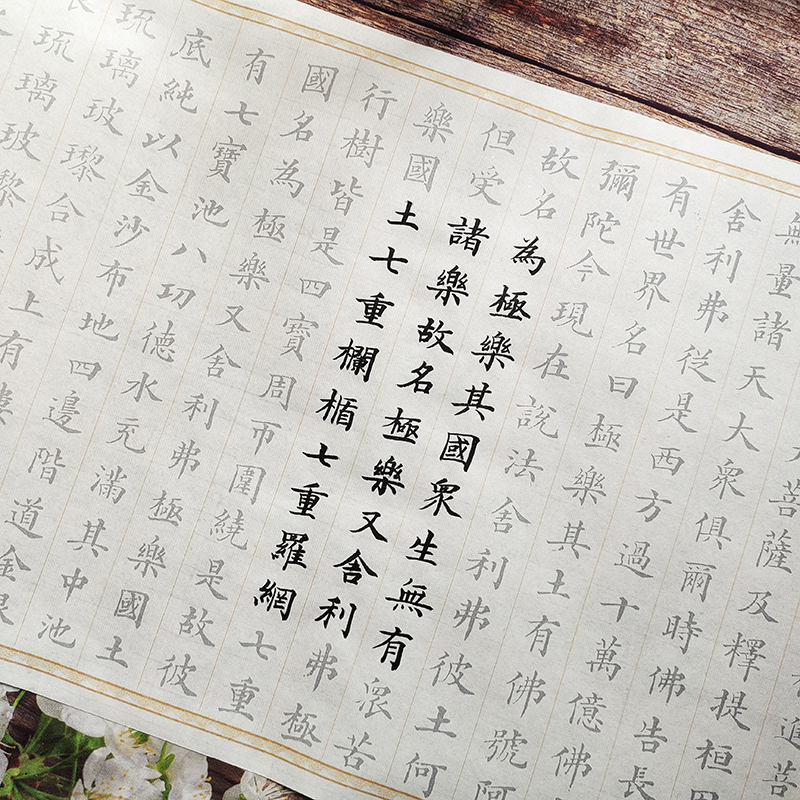 進菩
菩薩及釋提桓
無量諸天大衆俱爾時佛告長
舍利弗從是西方過十萬億佛
有世界名曰極樂其土有佛號阿
彌陀今現在說法舍利弗彼土何
故名為極樂其國衆生無有衆苦
但受諸樂故名極樂又舍利弗極
樂國土七重欄楯七重羅網七重
行樹皆是四寶周帀圍繞是故彼
國名為極樂又舍利弗極樂國土
有七寶池八功德水充滿其中池
底純以金沙布地四邊階道金銀
琉璃玻瓈合成上有
琉璃玻瓈